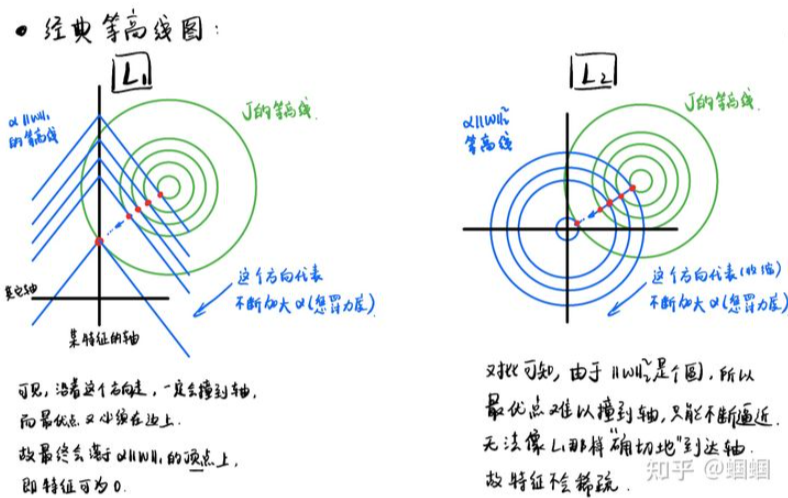 • 经典等高线图:
L₁
α||W||₁
的等高线
J的等高线.
其它轴
某特征的轴
这个方向代表
不断加大α(惩罚力度)
可见, 沿着这个方向走, 一定会撞到轴,
而最优点又必须在边上.
故最终会落于α||W||₁的顶点上,
即特征可为0.
L₂
α||W||₂²
等高线
J的等高线.
这个方向代表(收缩)
不断加大α(惩罚力度)
对比可知, 由于||W||₂²是个圆, 所以
最优点难以撞到轴, 只能不断逼近.
无法像L₁那样"确切地"到达轴.
故特征不会稀疏.
知乎 @蝈蝈